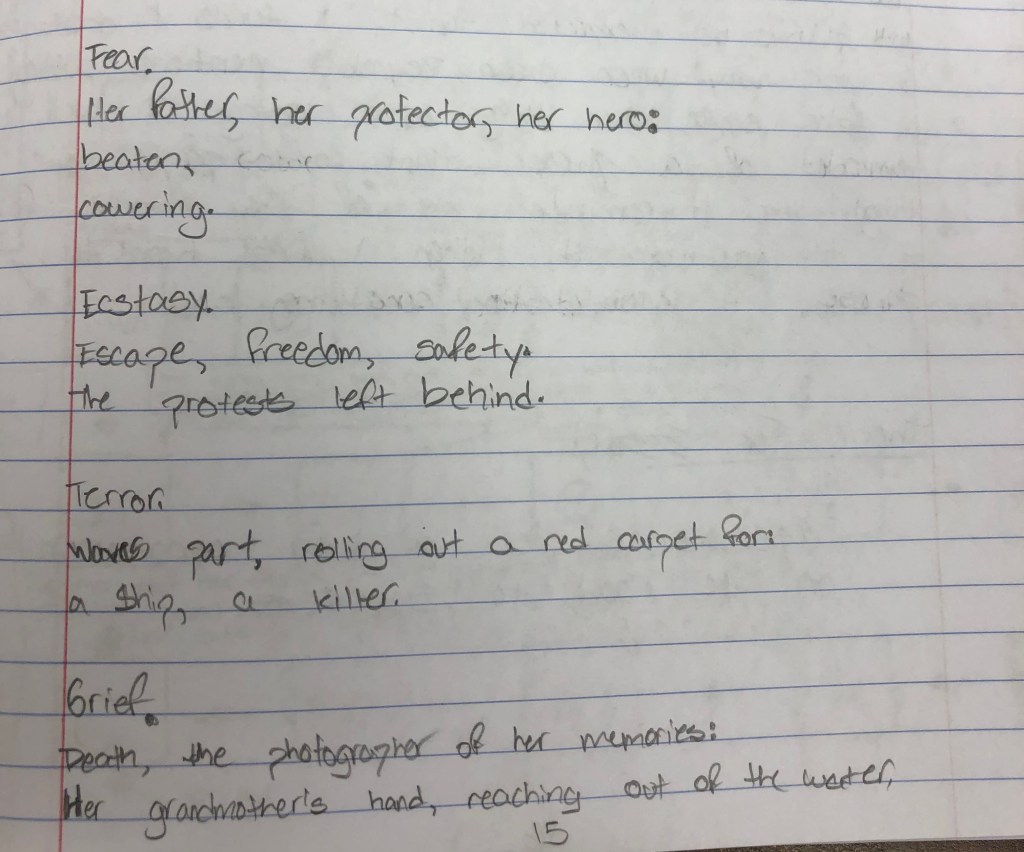 Fear.
Her father, her protector, her hero:
beaten,
cowering.
Ecstasy.
Escape, freedom, safety.
the protests left behind.
Terror.
Waves part, rolling out a red carpet for:
a ship, a killer.
Grief.
Death, the photographer of her memories:
Her grandmother's hand, reaching out of the water,
15